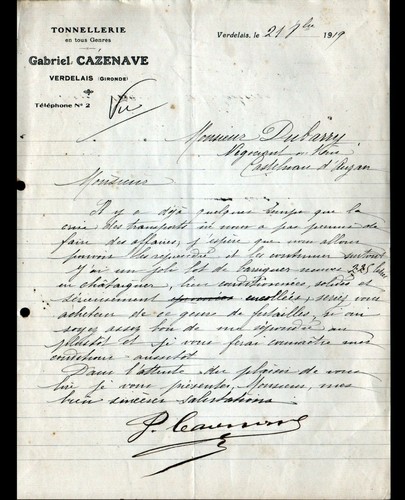 TONNELLERIE
en tous Genres
Gabriel CAZENAVE
VERDELAIS (GIRONDE)
Téléphone N° 2
Vu
Verdelais, le 21 1919
Monsieur Dubarry
Négociant en
Castelnau d'Auzan
Monsieur
Il y a déjà quelque temps que la
crise des transports ne nous a pas permis de
faire des affaires, j'espère que nous allons
pouvoir les reprendre et les continuer surtout
j'ai un joli lot de barriques neuves 225 litres
en châtaignier, bien conditionnées, solides et
sérieusement serez vous
acheteur de ce genre de futailles, si oui
soyez assez bon de me répondre au
plustôt et je vous ferai connaître mes
conditions aussitôt
Dans l'attente du plaisir de vous
lire je vous présente, Monsieur, mes
bien sincères salutations